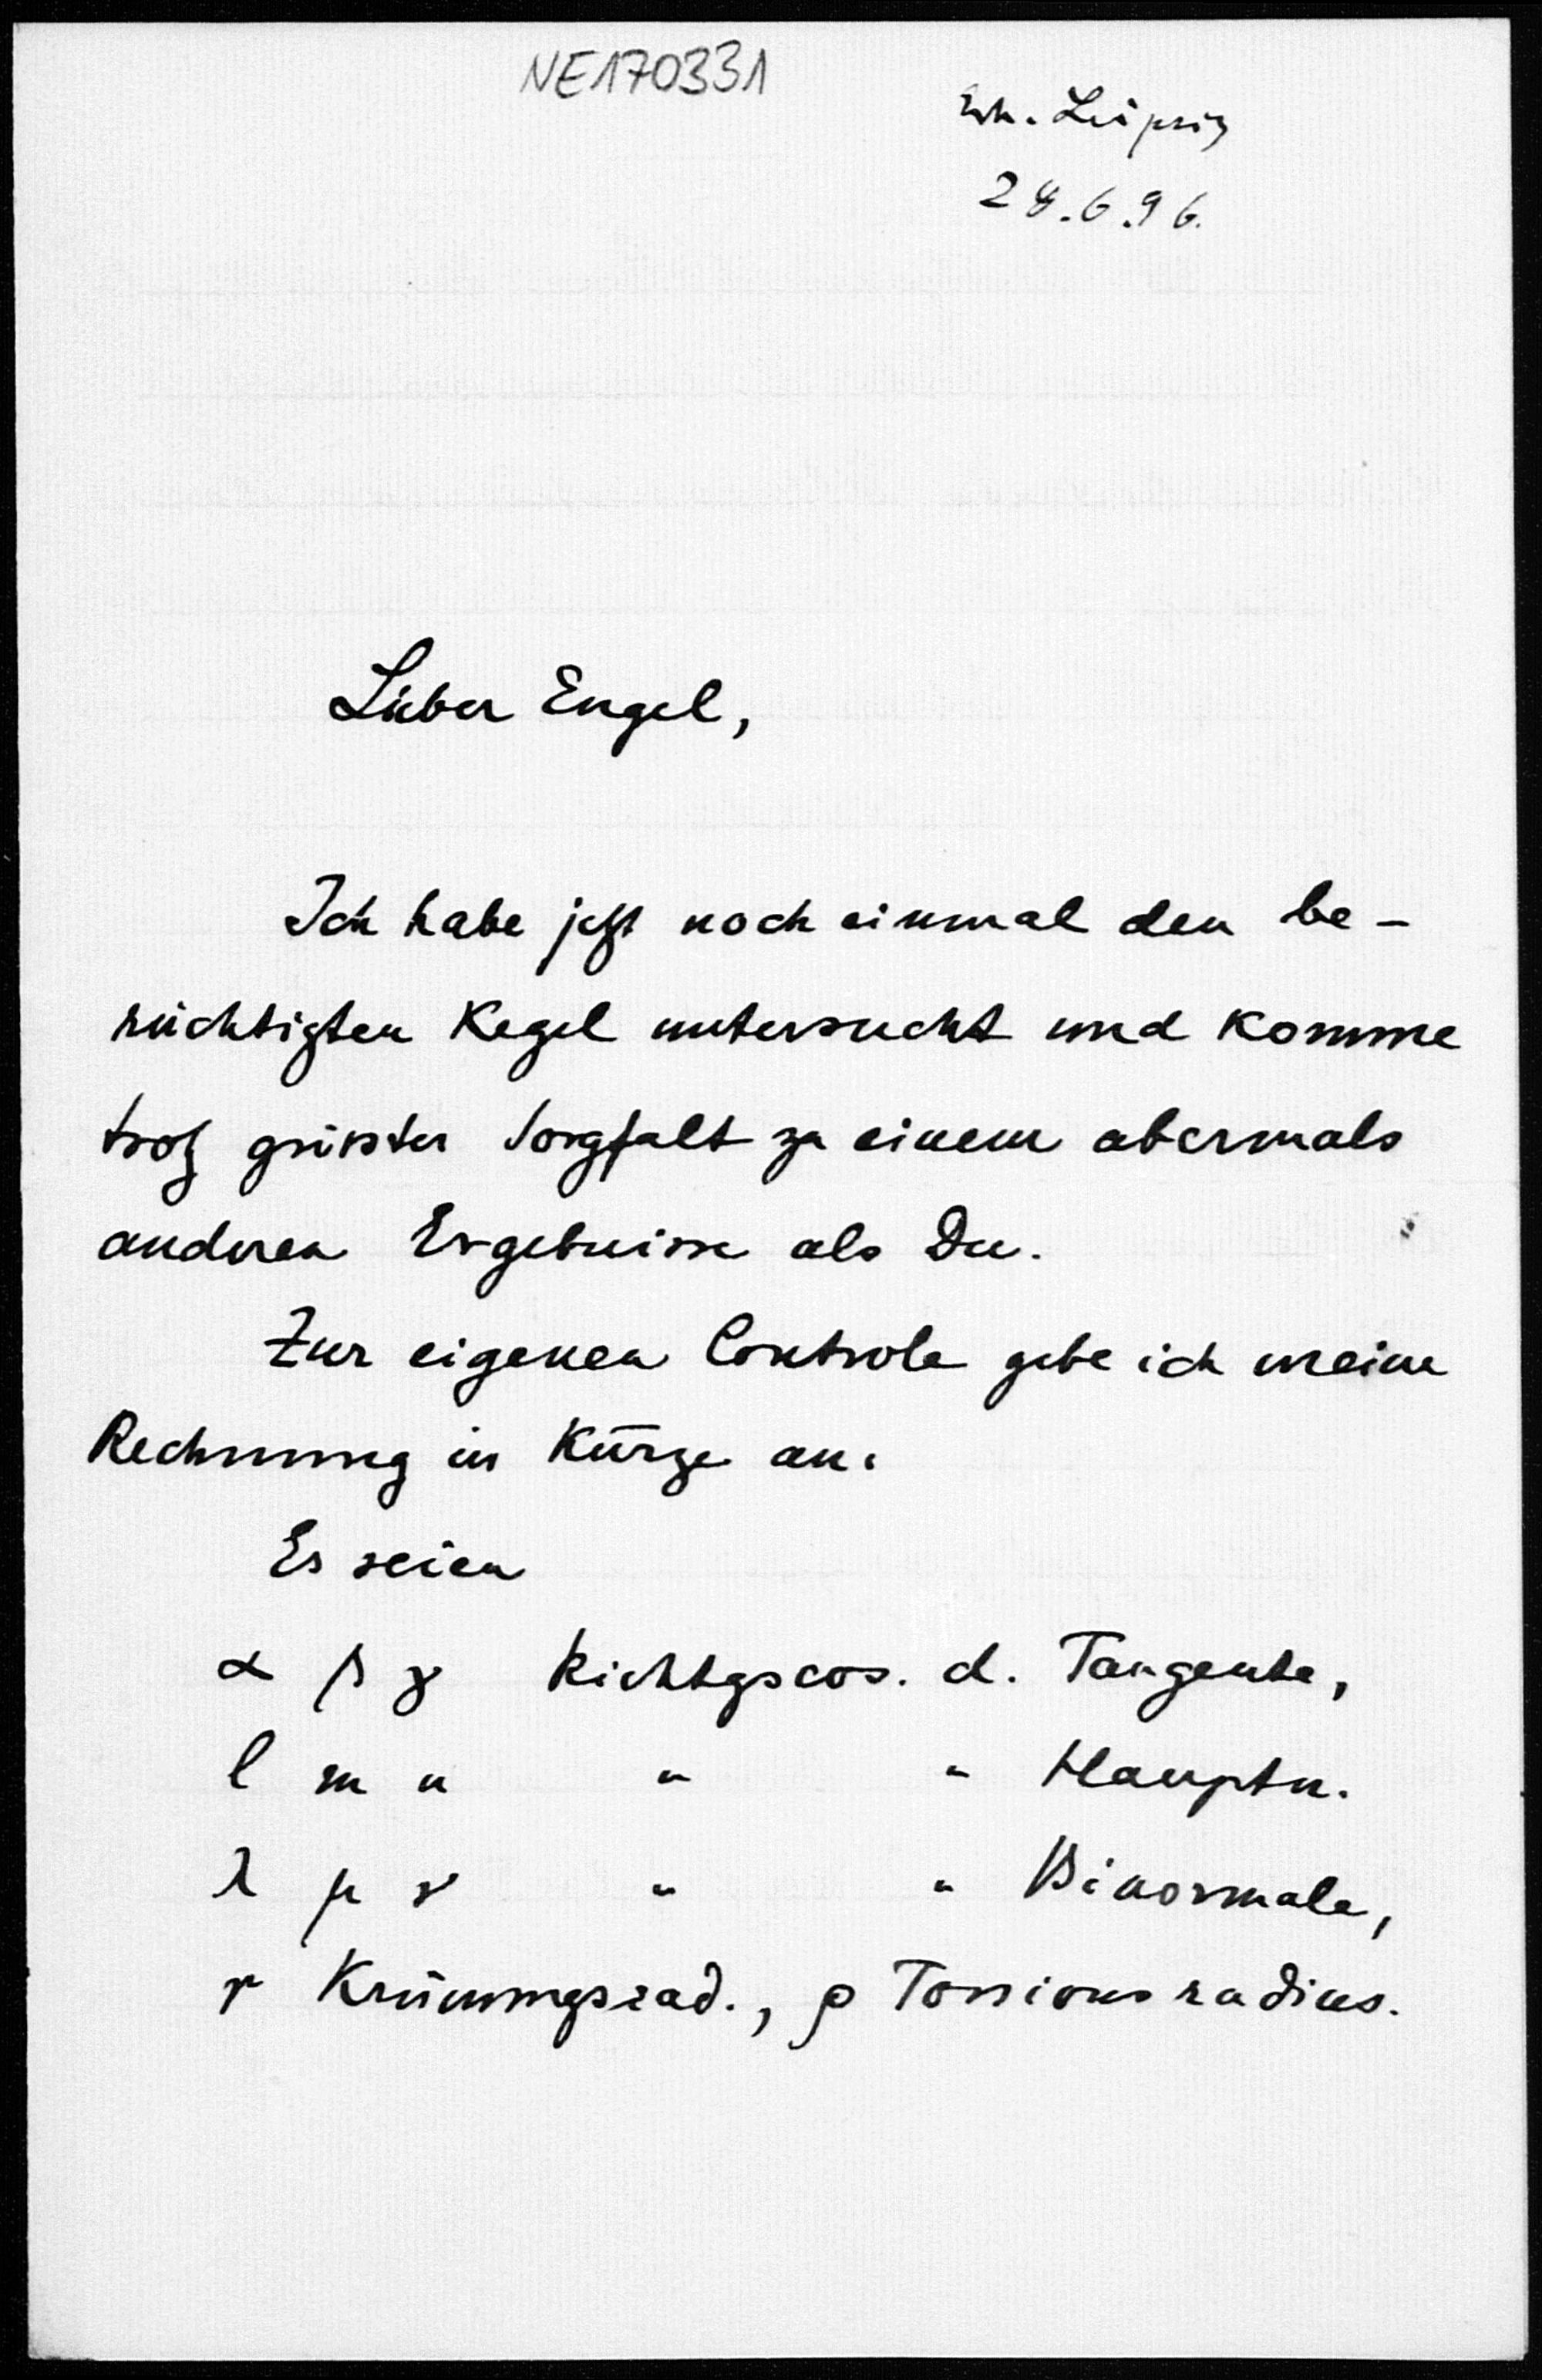 NE170331
Erh. Leipzig
28.6.96.
Lieber Engel,
Ich habe jetzt noch einmal den be-
rüchtigten Kegel untersucht und komme
trotz grösster Sorgfalt zu einem abermals
anderen Ergebnisse als Du.
Zur eigenen Controle gebe ich meine
Rechnung in Kürze an.
Es seien
α β γ Richtgscos. d. Tangente,
l m n " " Hauptn.
λ μ ν " " Binormale,
r Krümungsrad., ρ Torsionsradius.